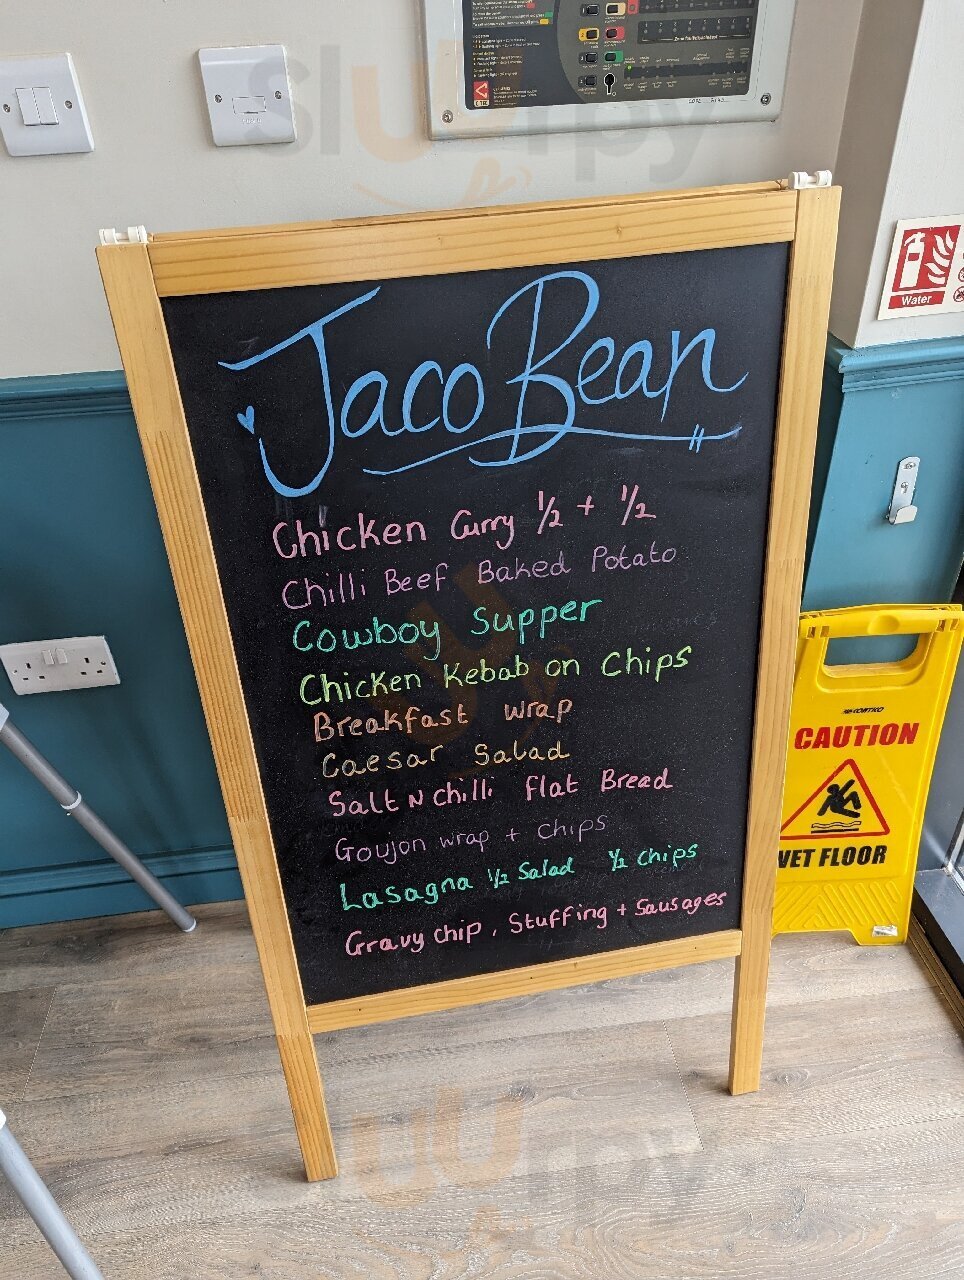 Jaco Bean
Chicken Curry 1/2 + 1/2
Chilli Beef Baked Potato
Cowboy Supper
Chicken Kebab on Chips
Breakfast wrap
Caesar Salad
Salt N chilli flat Bread
Goujon wrap + Chips
Lasagna 1/2 Salad 1/2 chips
Gravy chip, Stuffing + Sausages
Water
CAUTION
WET FLOOR
sluurpy
sluurpy